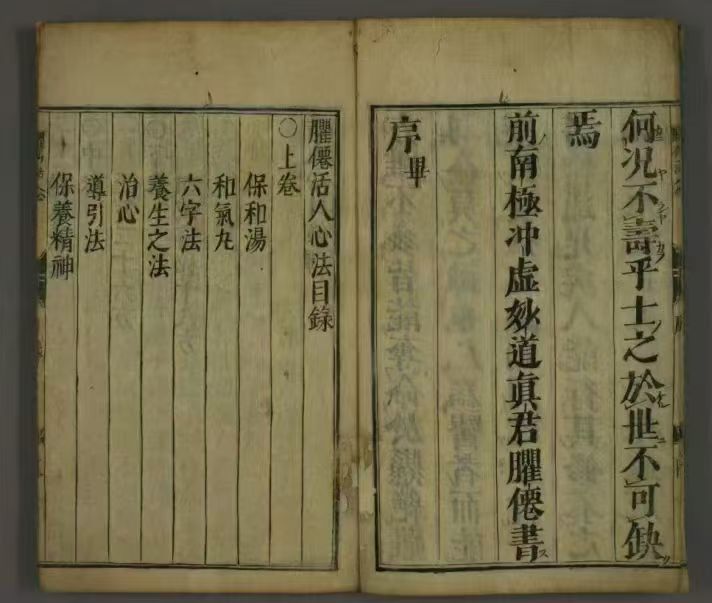 何況不壽乎士之於世不可缺
焉
前南極冲虛妙道真君臞僊書
序畢
臞僊活人心法目錄
○上卷
保和湯
和氣丸
六字法
養生之法
治心
導引法
保養精神